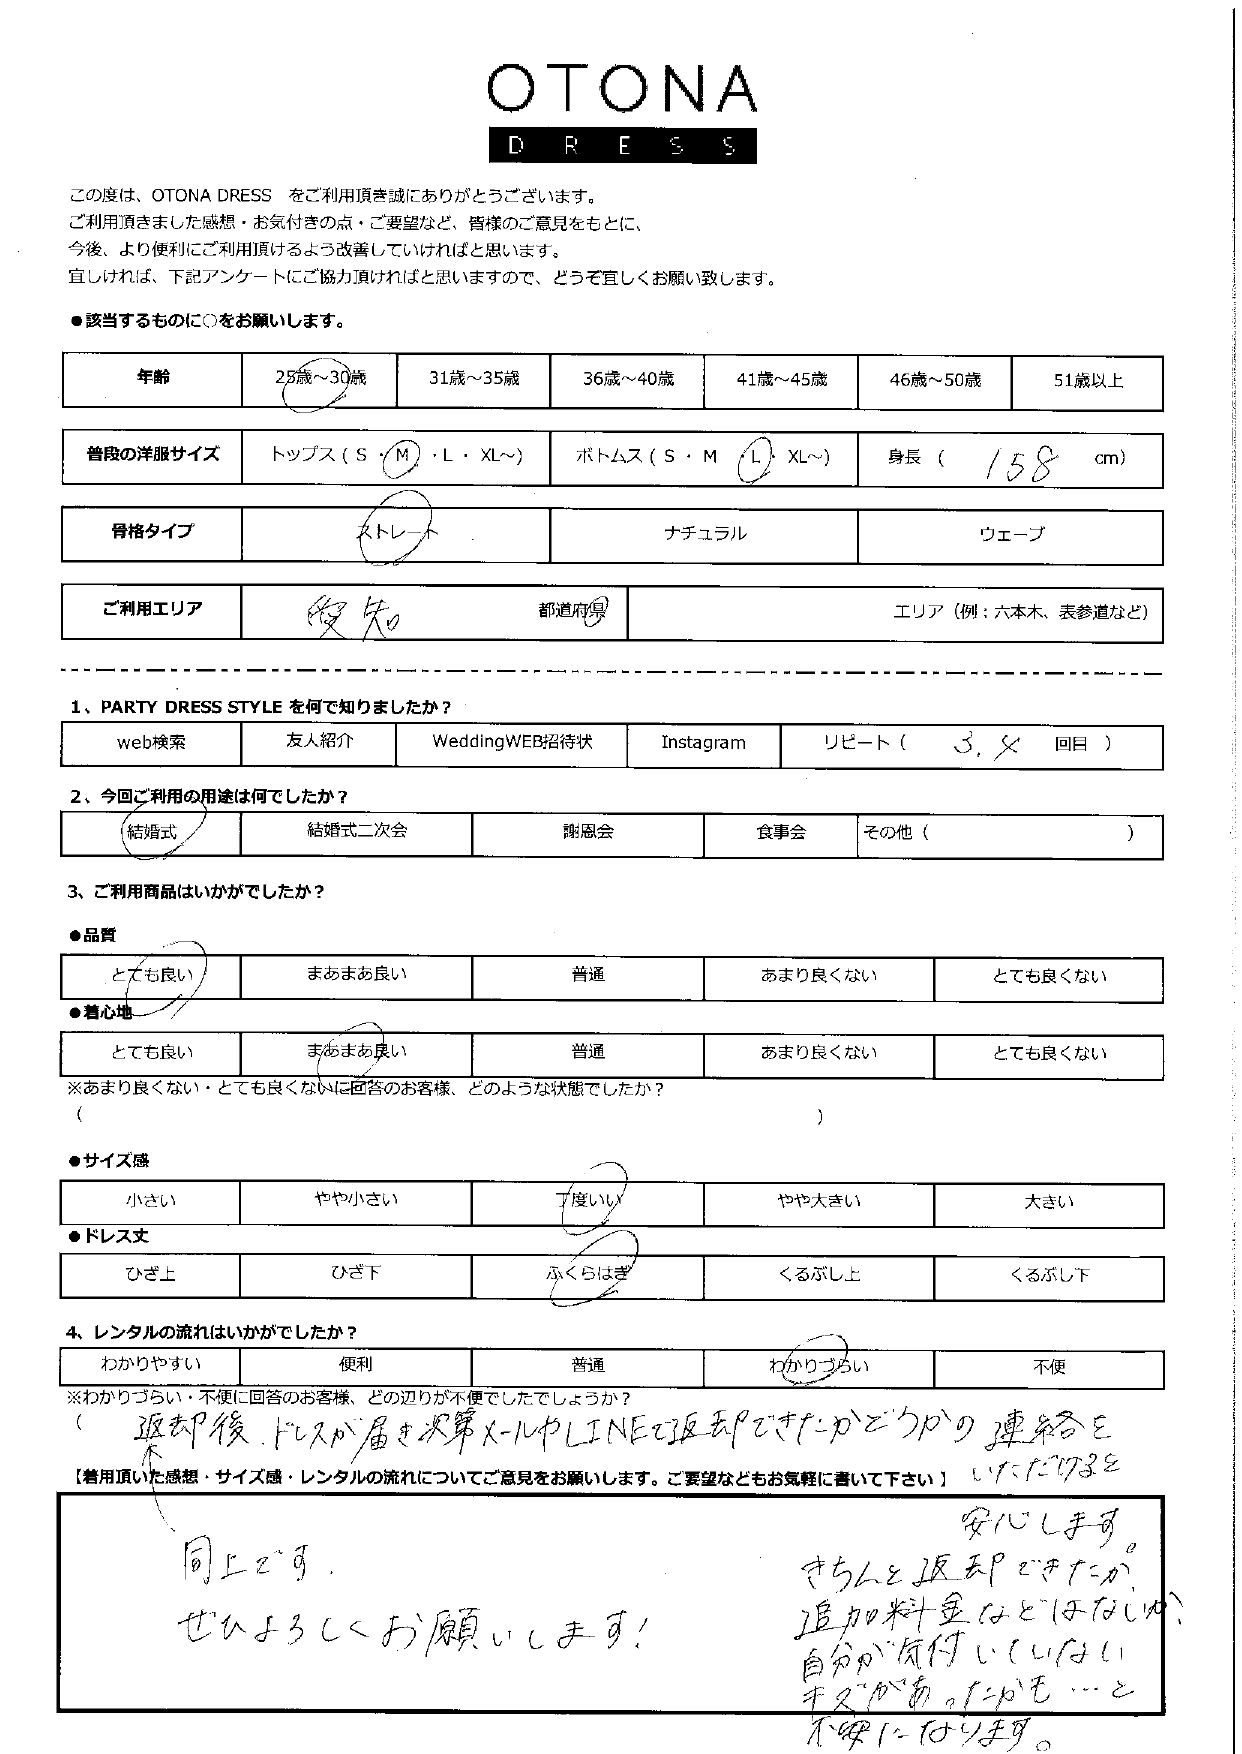 OTONA
DRESS
この度は、OTONA DRESS をご利用頂き誠にありがとうございます。
ご利用頂きました感想・お気付きの点・ご要望など、皆様のご意見をもとに、
今後、より便利にご利用頂けるよう改善していければと思います。
宜しければ、下記アンケートにご協力頂ければと思いますので、どうぞ宜しくお願い致します。
●該当するものに○をお願いします。
年齢 25歳～30歳 31歳～35歳 36歳～40歳 41歳～45歳 46歳～50歳 51歳以上
普段の洋服サイズ トップス ( S ・ M ・ L ・ XL～) ボトムス ( S ・ M ・ L ・ XL～) 身長 ( 158 cm)
骨格タイプ ストレート ナチュラル ウェーブ
ご利用エリア 愛知 都道府県 エリア（例；六本木、表参道など）
1、PARTY DRESS STYLE を何で知りましたか？
web検索 友人紹介 WeddingWEB招待状 Instagram リピート ( 3.4 回目 )
2、今回ご利用の用途は何でしたか？
結婚式 結婚式二次会 謝恩会 食事会 その他 ( )
3、ご利用商品はいかがでしたか？
●品質
とても良い まあまあ良い 普通 あまり良くない とても良くない
●着心地
とても良い まあまあ良い 普通 あまり良くない とても良くない
※あまり良くない・とても良くないに回答のお客様、どのような状態でしたか？
( )
●サイズ感
小さい やや小さい 丁度いい やや大きい 大きい
●ドレス丈
ひざ上 ひざ下 ふくらはぎ くるぶし上 くるぶし下
4、レンタルの流れはいかがでしたか？
わかりやすい 便利 普通 わかりづらい 不便
※わかりづらい・不便に回答のお客様、どの辺りが不便でしたでしょうか？
( 返却後、ドレスが届き次第メールやLINEで返却できたかどうかの連絡を
いただけると
【着用頂いた感想・サイズ感・レンタルの流れについてご意見をお願いします。ご要望などもお気軽に書いて下さい】
安心します。
同上です.
ぜひよろしくお願いします!
きちんと返却できたか、
追加料金などはないか、
自分が気付いていない
キズがあったかも…と
不安になります。